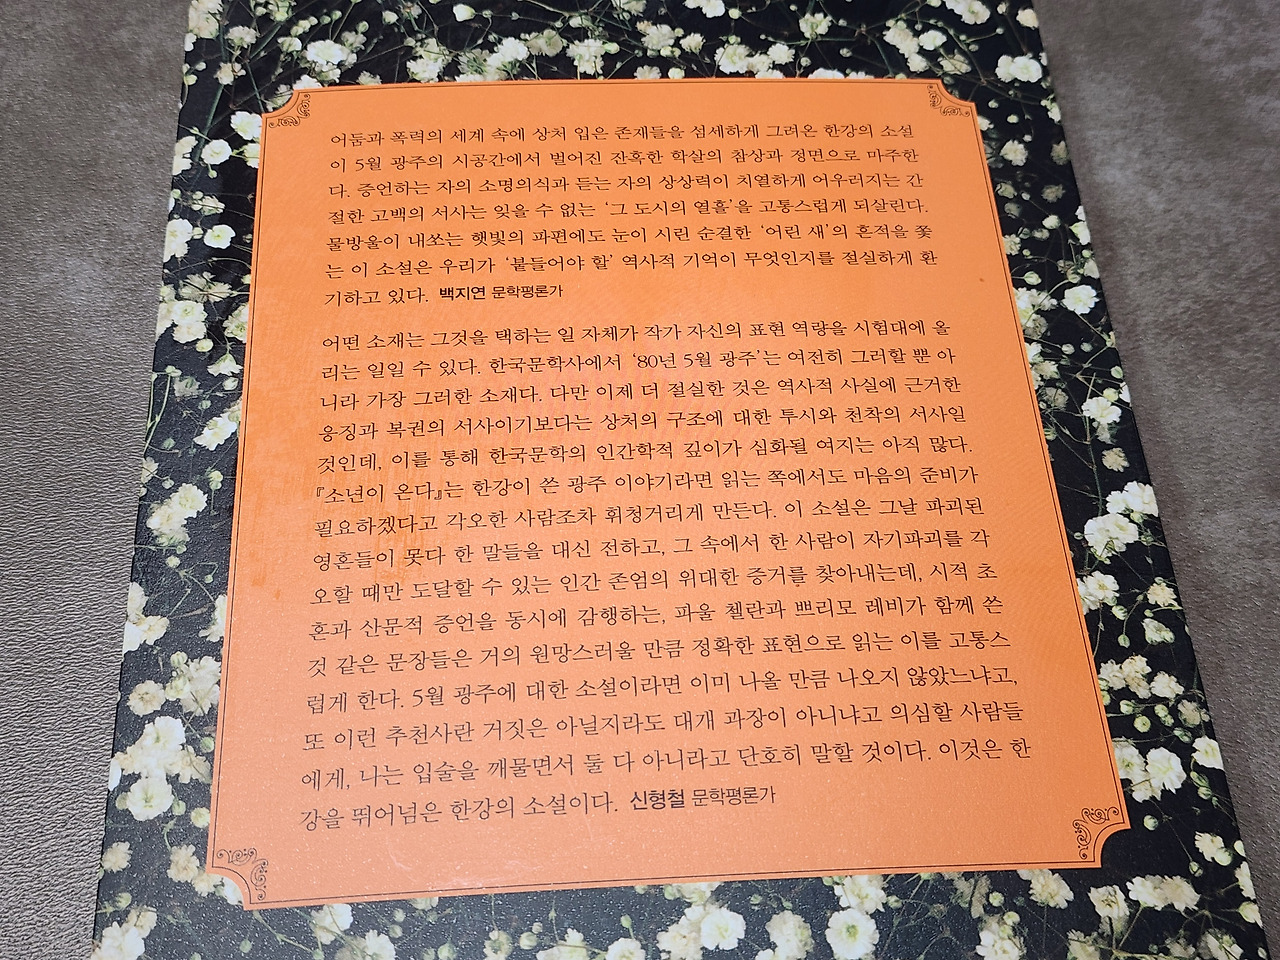 어둠과 폭력의 세계 속에 상처 입은 존재들을 섬세하게 그려온 한강의 소설
이 5월 광주의 시공간에서 벌어진 잔혹한 학살의 참상과 정면으로 마주한
다. 증언하는 자의 소명의식과 듣는 자의 상상력이 치열하게 어우러지는 간
절한 고백의 서사는 잊을 수 없는 ‘그 도시의 열흘’을 고통스럽게 되살린다.
물방울이 내쏘는 햇빛의 파편에도 눈이 시린 순결한 ‘어린 새’의 흔적을 쫓
는 이 소설은 우리가 ‘붙들어야 할’ 역사적 기억이 무엇인지를 절실하게 환
기하고 있다. 백지연 문학평론가
어떤 소재는 그것을 택하는 일 자체가 작가 자신의 표현 역량을 시험대에 올
리는 일일 수 있다. 한국문학사에서 ‘80년 5월 광주’는 여전히 그러할 뿐 아
니라 가장 그러한 소재다. 다만 이제 더 절실한 것은 역사적 사실에 근거한
응징과 복권의 서사이기보다는 상처의 구조에 대한 투시와 천착의 서사일
것인데, 이를 통해 한국문학의 인간학적 깊이가 심화될 여지는 아직 많다.
『소년이 온다』는 한강이 쓴 광주 이야기라면 읽는 쪽에서도 마음의 준비가
필요하겠다고 각오한 사람조차 휘청거리게 만든다. 이 소설은 그날 파괴된
영혼들이 못다 한 말들을 대신 전하고, 그 속에서 한 사람이 자기파괴를 각
오할 때만 도달할 수 있는 인간 존엄의 위대한 증거를 찾아내는데, 시적 초
혼과 산문적 증언을 동시에 감행하는, 파울 첼란과 쁘리모 레비가 함께 쓴
것 같은 문장들은 거의 원망스러울 만큼 정확한 표현으로 읽는 이를 고통스
럽게 한다. 5월 광주에 대한 소설이라면 이미 나올 만큼 나오지 않았느냐고,
또 이런 추천사란 거짓은 아닐지라도 대개 과장이 아니냐고 의심할 사람들
에게, 나는 입술을 깨물면서 둘 다 아니라고 단호히 말할 것이다. 이것은 한
강을 뛰어넘은 한강의 소설이다. 신형철 문학평론가